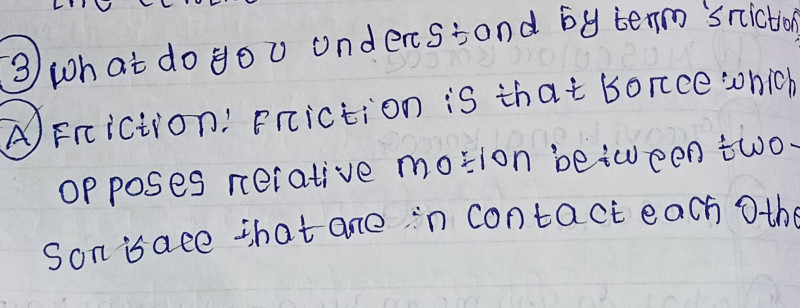 3) What do you understand by term 'friction
A) Friction: Friction is that force which
opposes relative motion between two-
surface that are in contact each othe